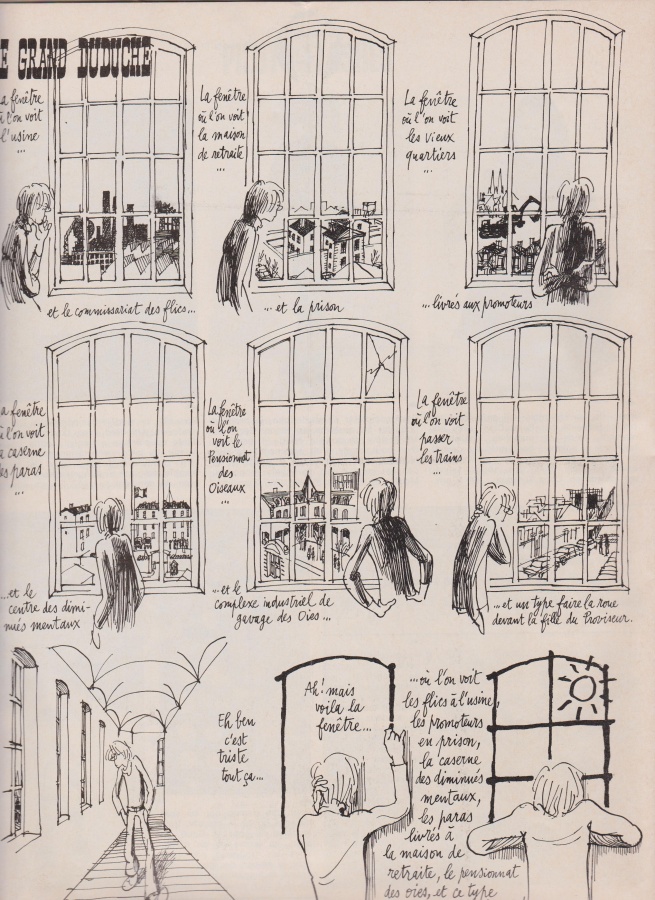 E GRAND DUDUCHE
a fenêtre
ù l'on voit
l'usine
...
et le commissariat des flics...
La fenêtre
où l'on voit
la maison
de retraite
...
... et la prison
La fenêtre
où l'on voit
les vieux
quartiers
...
...livrés aux promoteurs
a fenêtre
ù l'on voit
a caserne
es paras
...
...et le
centre des dimi-
nués mentaux
La fenêtre
où l'on
voit le
Pensionnat
des
Oiseaux
...
...et le
complexe industriel de
gavage des Oies...
La fenêtre
où l'on voit
passer
les trains
...
...et un type faire la roue
devant la fille du Proviseur.
Eh ben
c'est
triste
tout ça...
Ah! mais
voila la
fenêtre...
...où l'on voit
les flics à l'usine,
les promoteurs
en prison,
la caserne
des diminués
mentaux,
les paras
livrés à
la maison de
retraite, le pensionnat
des oies, et ce type